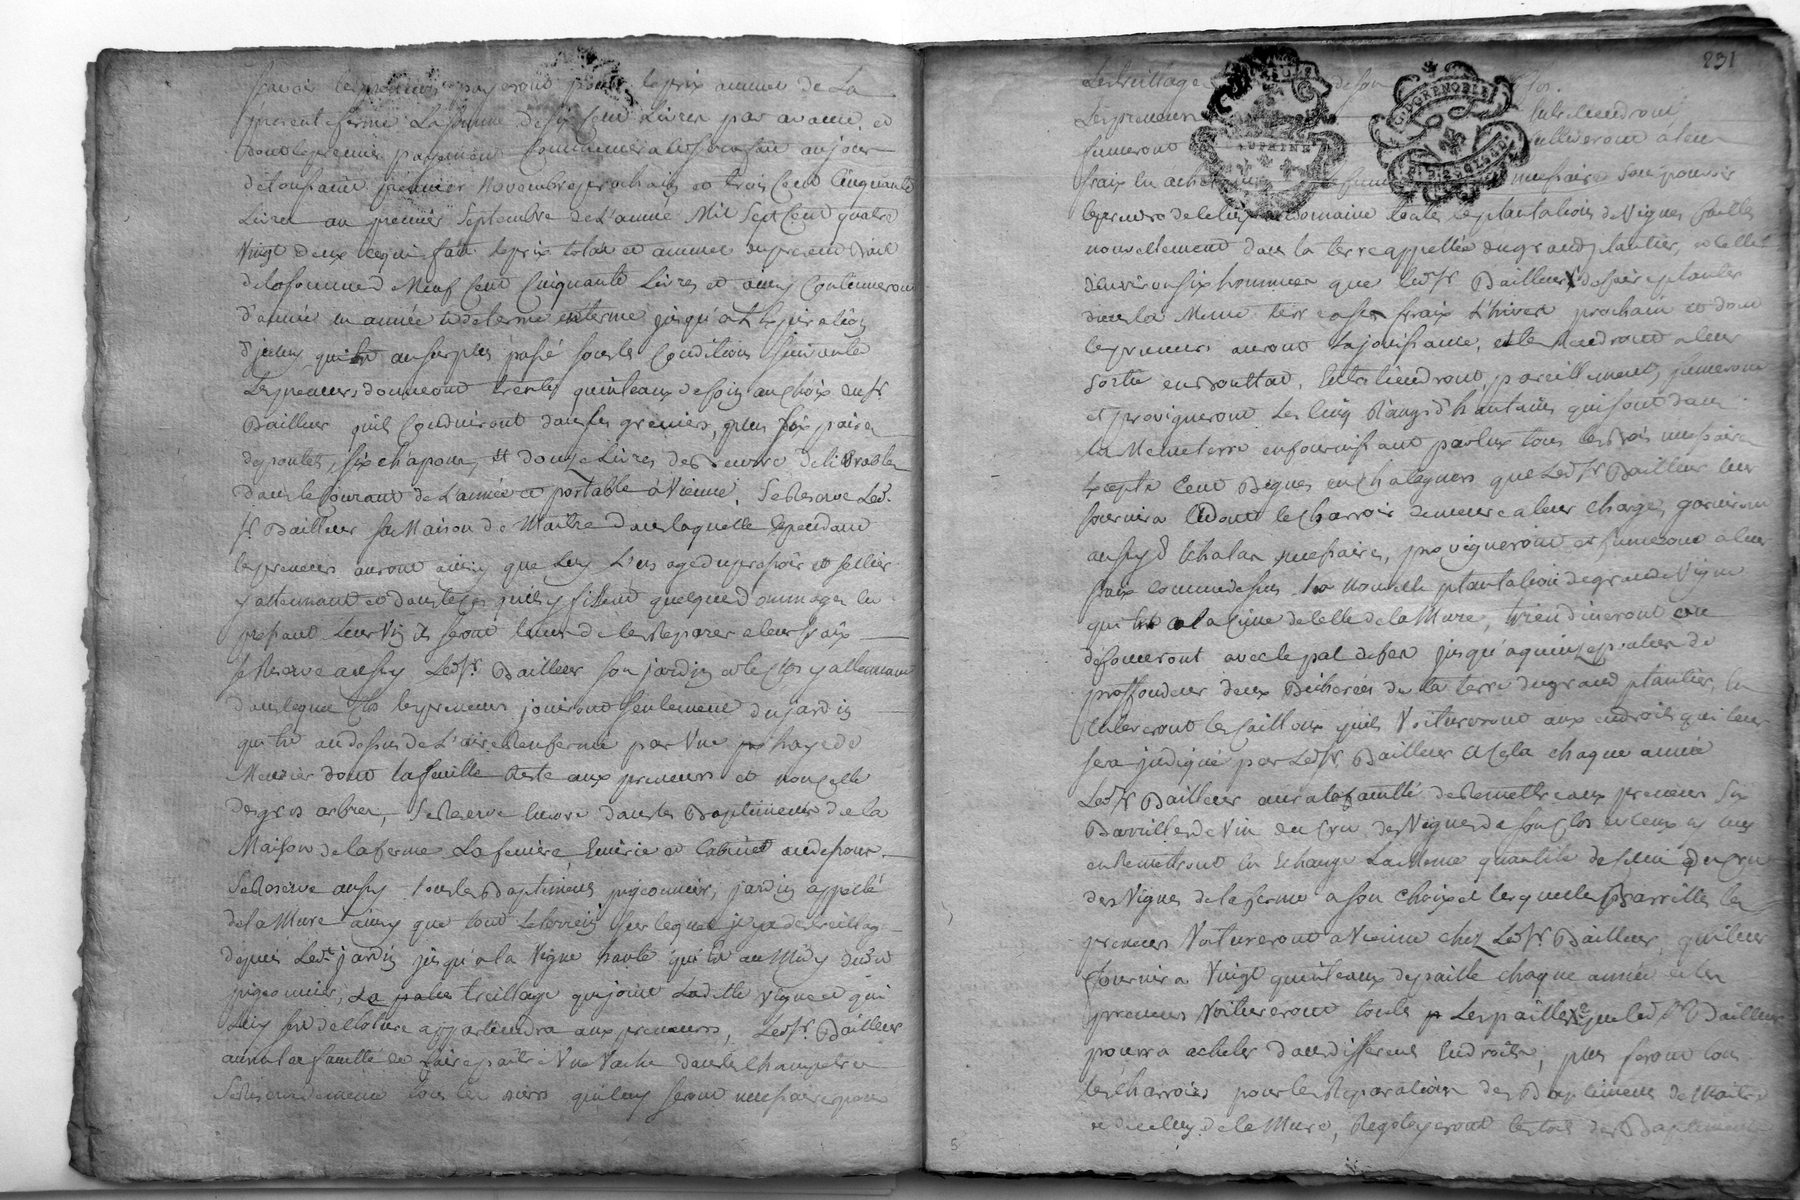 Savoir les preneurs payeront pour le prix annuel de La
presente ferme La somme de six Cent Livres par avance, et
dont le premier payement Commencera a se faire au jour
de toussaint premier Novembre prochain et trois Cent Cinquante
Livres au premier Septembre de L'année Mil Sept Cent quatre
Vingt deux ce qui fait le prix total et annuel du present Bail
de la somme de Neuf Cent Cinquante Livres et ainsy Continueront
d'année en année et de terme en terme jusqu'a L'expiration
d'iceluy, qui est au surplus passé sous les Conditions suivantes
Les preneurs donneront trente quinteaux de foin au Choix du sr.
Bailleur qu'ils Conduiront dans ses greniers, plus six paires
de poulets, six chapons, et douze Livres de Beurre delivrables
dans le Courant de L'année et portable à Vienne, Se Reserve Led.
sr. Bailleur sa Maison de Maitre dans laquelle Cependant
les preneurs auront ainsy que Luy L'usage du pressoir et sellier
y attennant et dans le Cas qu'ils y fissent quelques dommages en
pressant Leur Vin ils seront tenus de les Reparer a leur fraix
se Reserve aussy Led. sr. Bailleur son jardin et le Clos y attennant
dans lequel Clos les preneurs jouiront seulement du jardin
qui est au dessus de L'aire Renfermé par Une haye de
Meurier dont la feuille Reste aux preneurs et non Celle
des gros arbres, Se Reserve encore dans les Baptiments de la
Maison de la ferme La feniere, Ecurie et Cabinet au dessous
Se Reserve aussy tous les Baptiments pigeonnier, jardin appellé
de la Mure ainsy que tout le terrein sur lequel il y a de treillage
depuis Led. jardin jusqu'a la Vigne haute qui est au Midy dud.
pigeonnier, La treillage qui joint Ladite Vigne et qui
Luy sert de Cloture appartiendra aux preneurs, Led. sr. Bailleur
aura la faculté de faire paitre Une Vache dans les champs et
Se Reserve de meme tous les osiers qui luy seront necessaires pour
231
Les treillages de son Clos.
Les preneurs entretiendront
fumeront cultiveront a leur
fraix en achetant necessaire sans pouvoir
le prendre de Celuy du Domaine toutes les plantations de Vignes faittes
nouvellement dans la terre appellée du grand plantier, et Celle
d'environ six hommées que led. sr. Bailleur desire planter
dans la Meme terre a ses fraix L'hiver prochain et dont
les preneurs auront La jouissance, et les Rendront a leur
sortie en Bon etat, Entretiendront pareillement, fumeront
et provigneront Les Cinq Rangs d'hautains qui sont dans
La Meme terre en fournissant par eux tous les Bois necessaires
Excepté Cent Bigues en Chategners que Led. sr. Bailleur leur
fournira et dont le Charroir demeure a leur charge, garniront
aussy d'Echalas necessaires, provigneront et fumeront a leur
fraix comme dessus la nouvelle plantation de grande Vigne
qui est a la Cime de Celle de la Mure,
defonceront avec le pal de fer jusqu'a quinze pouces de
proffondeur deux Bicherées de la terre du grand plantier, en
Enleveront les Cailloux qu'ils Voitureront aux endroits qui leur
sera indiqué par Led. sr. Bailleur et Cela chaque année
Led. sr. Bailleur aura la faculté de Remettre aux preneurs Six
Barrilles de Vin du Cru des Vignes de son Clos et Ceux cy luy
en Remettront En Echange La Meme quantité de Celui du Cru
des Vignes de la ferme a son Choix et lesquelles Barrilles les
preneurs Voitureront a Vienne chez Led. sr. Bailleur, qui leur
fournira Vingt quinteaux de paille chaque année et les
preneurs Voitureront toutes Les pailles que led. sr. Bailleur
pourra acheter dans differents Endroits, plus feront tous
les charrois pour les Reparations des Baptiments de Maitre
et de Celuy de la Mure, Regoteyeront les toits des Baptiments